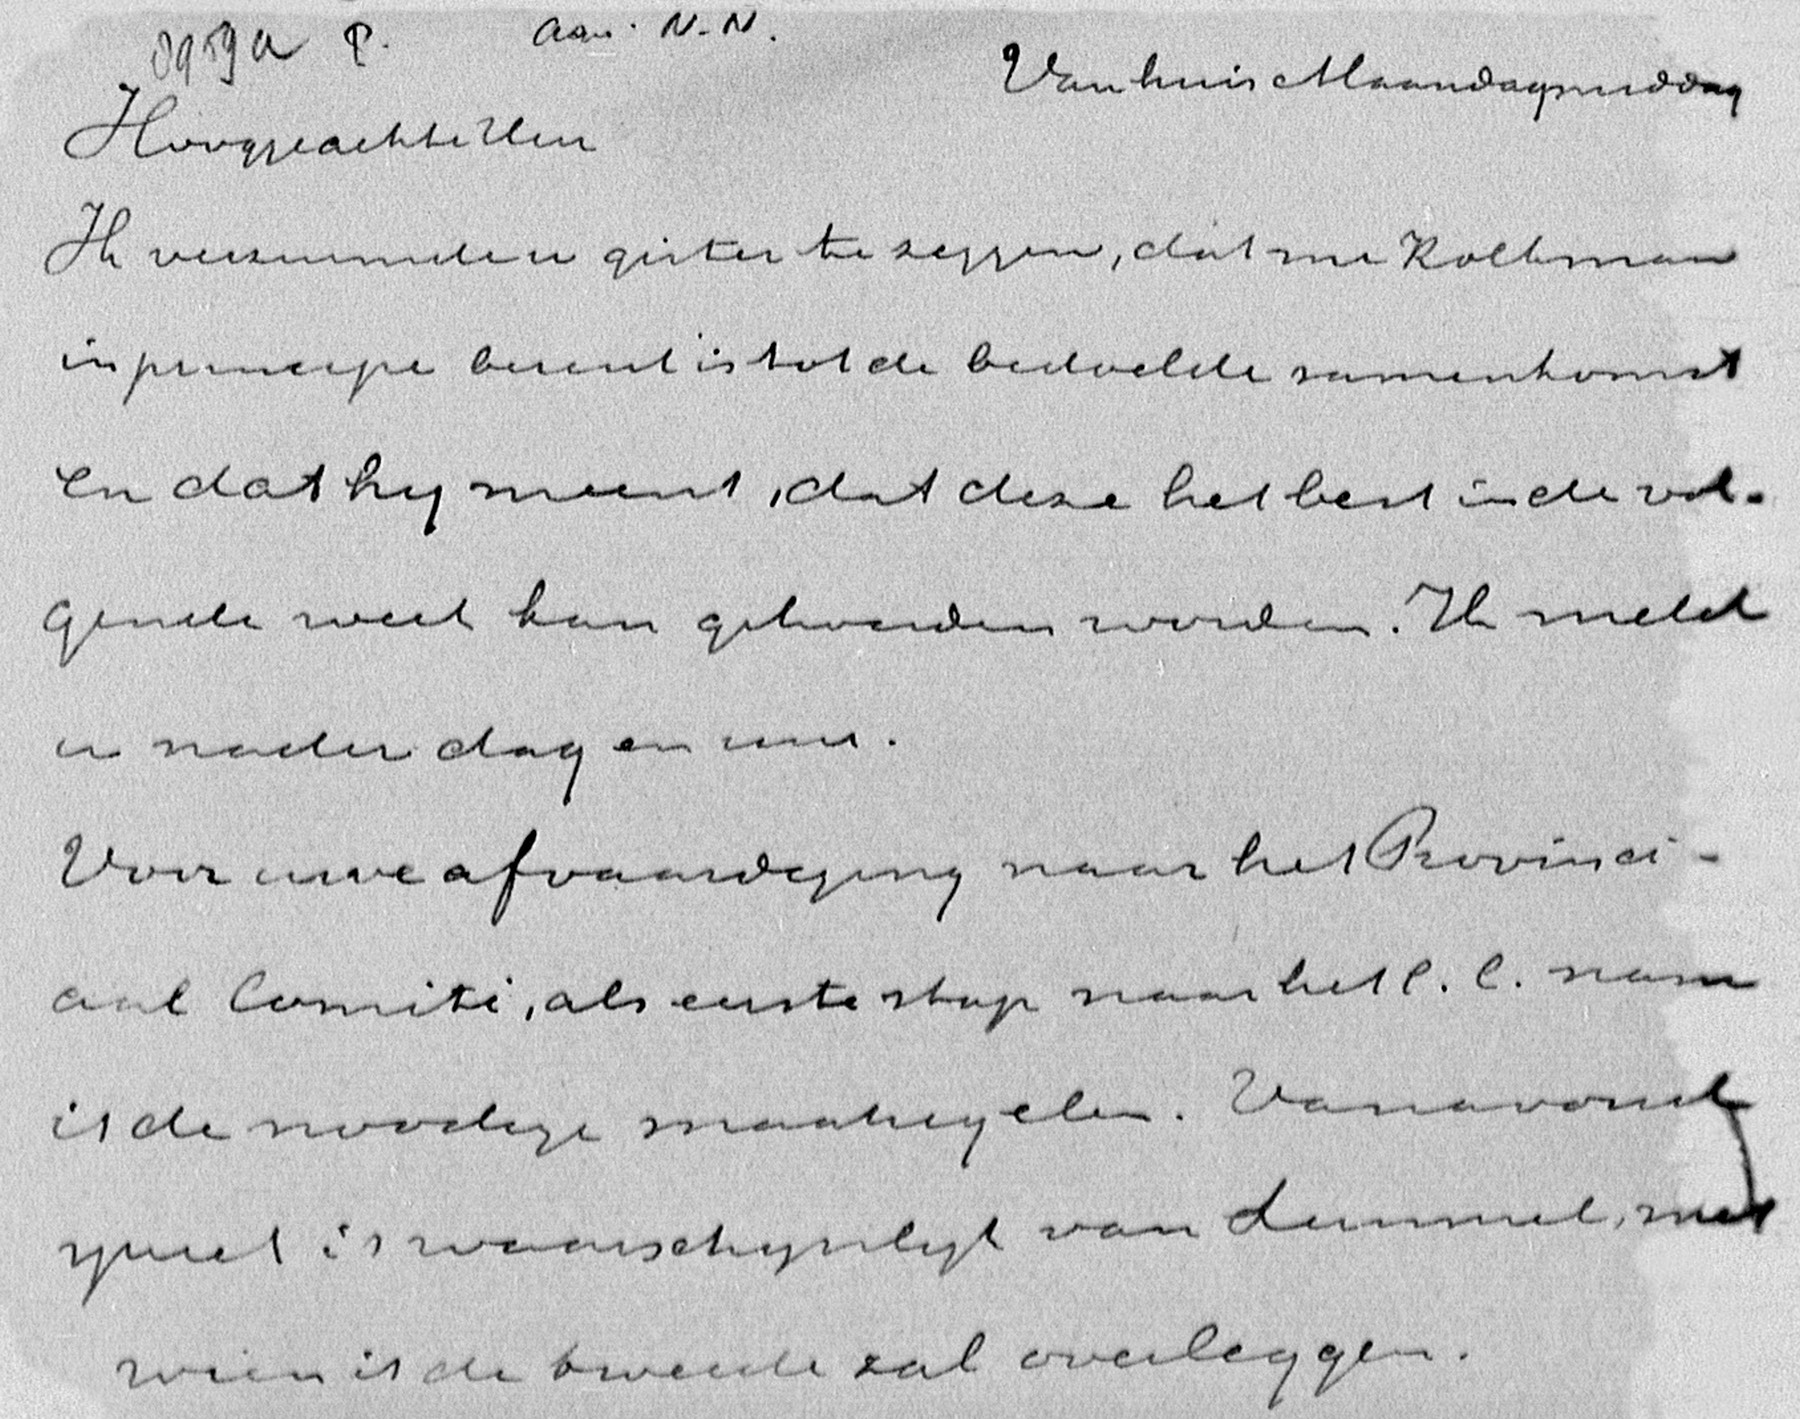 0959a P. Aan: N.N.
Van huis Maandagmiddag
Hooggeachte Heer
Ik verzuimde u gister te zeggen, dat me Kolkman
in principe bereid is tot de bedoelde samenkomst
en dat hy meent, dat deze het best in de vol-
gende week kan gehouden worden. Ik meld
u nader dag en uur.
Voor uwe afvaardiging naar het Provinci-
aal Comité, als eerste stap naar het C.C. nam
ik de noodige maatregelen. Vanavond
spreek ik waarschynlyk van Lummel, met
wien ik de tweede zal overleggen.